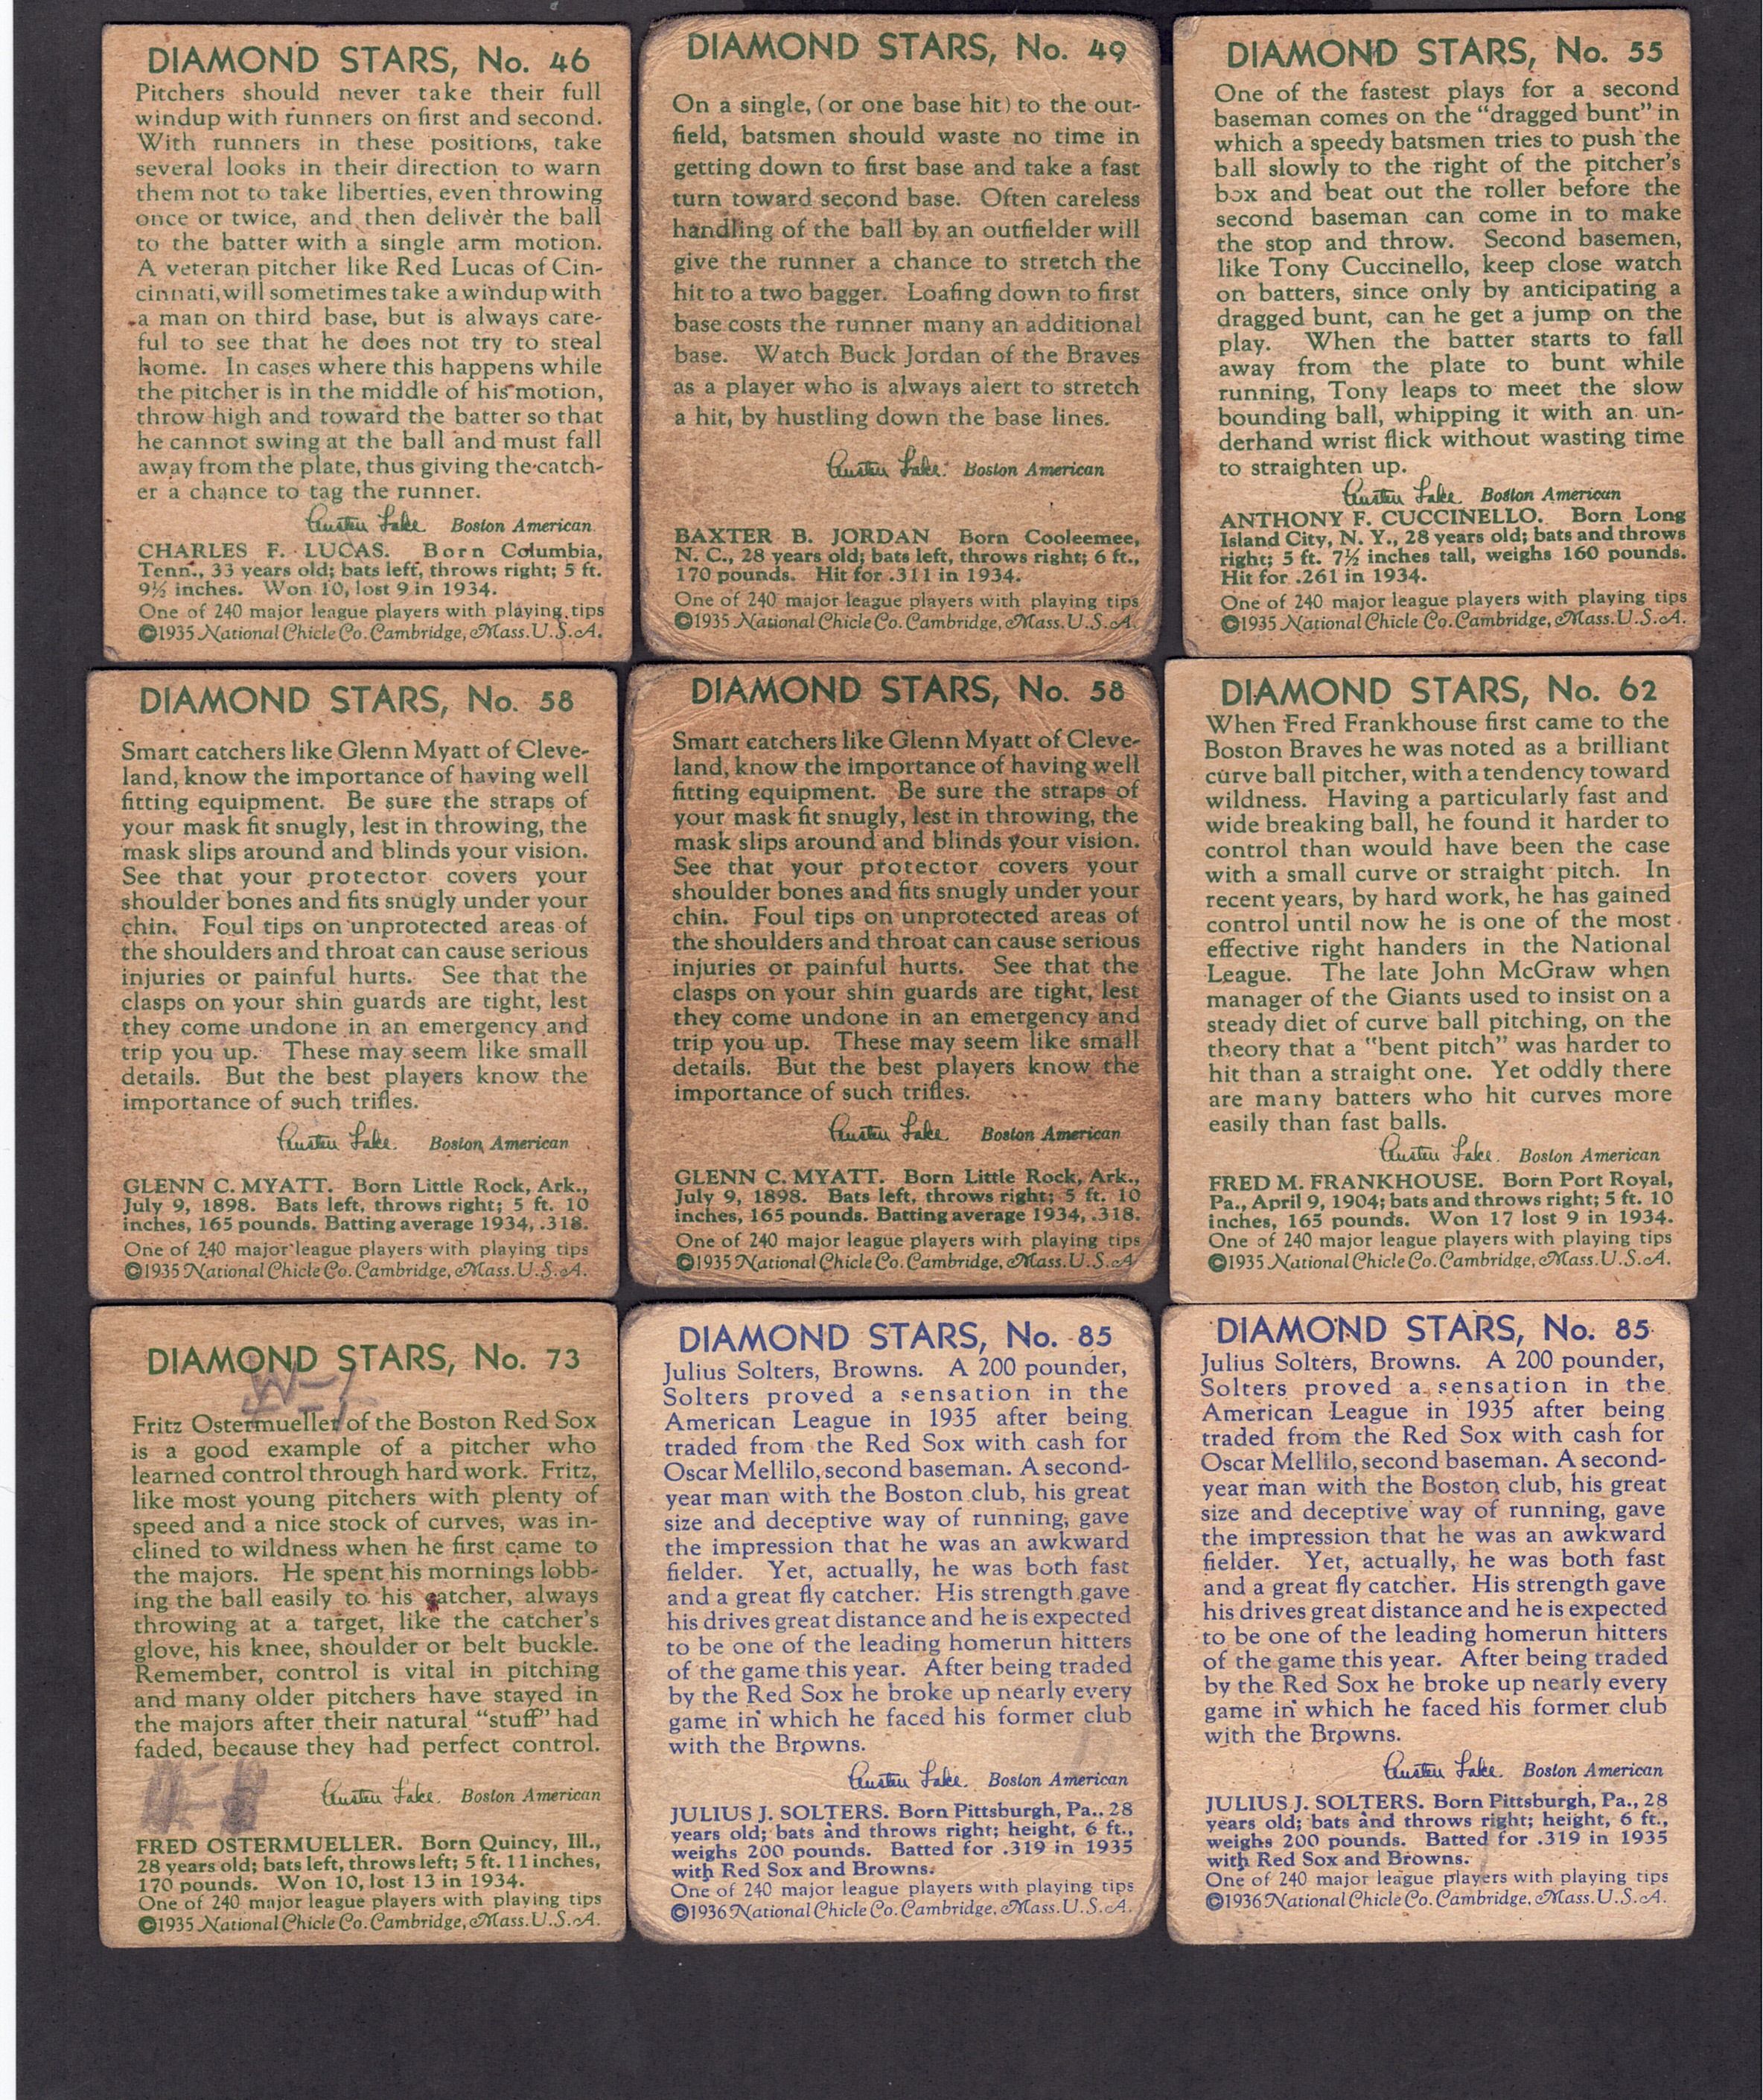 DIAMOND STARS, No. 46
Pitchers should never take their full
windup with runners on first and second.
With runners in these positions, take
several looks in their direction to warn
them not to take liberties, even throwing
once or twice, and then deliver the ball
to the batter with a single arm motion.
A veteran pitcher like Red Lucas of Cin-
cinnati, will sometimes take a windup with
a man on third base, but is always care-
ful to see that he does not try to steal
home. In cases where this happens while
the pitcher is in the middle of his motion,
throw high and toward the batter so that
he cannot swing at the ball and must fall
away from the plate, thus giving the catch-
er a chance to tag the runner.
Austen Lake. Boston American
CHARLES F. LUCAS. Born Columbia,
Tenn., 33 years old; bats left, throws right; 5 ft.
9½ inches. Won 10, lost 9 in 1934.
One of 240 major league players with playing tips
©1935 National Chicle Co. Cambridge, Mass. U.S.A.
DIAMOND STARS, No. 49
On a single, (or one base hit) to the out-
field, batsmen should waste no time in
getting down to first base and take a fast
turn toward second base. Often careless
handling of the ball by an outfielder will
give the runner a chance to stretch the
hit to a two bagger. Loafing down to first
base costs the runner many an additional
base. Watch Buck Jordan of the Braves
as a player who is always alert to stretch
a hit, by hustling down the base lines.
Austen Lake. Boston American
BAXTER B. JORDAN Born Cooleemee,
N. C., 28 years old; bats left, throws right; 6 ft.,
170 pounds. Hit for .311 in 1934.
One of 240 major league players with playing tips
©1935 National Chicle Co. Cambridge, Mass. U.S.A.
DIAMOND STARS, No. 55
One of the fastest plays for a second
baseman comes on the "dragged bunt" in
which a speedy batsmen tries to push the
ball slowly to the right of the pitcher's
box and beat out the roller before the
second baseman can come in to make
the stop and throw. Second basemen,
like Tony Cuccinello, keep close watch
on batters, since only by anticipating a
dragged bunt, can he get a jump on the
play. When the batter starts to fall
away from the plate to bunt while
running, Tony leaps to meet the slow
bounding ball, whipping it with an un-
derhand wrist flick without wasting time
to straighten up.
Austen Lake. Boston American
ANTHONY F. CUCCINELLO. Born Long
Island City, N. Y., 28 years old; bats and throws
right; 5 ft. 7½ inches tall, weighs 160 pounds.
Hit for .261 in 1934.
One of 240 major league players with playing tips
©1935 National Chicle Co. Cambridge, Mass. U.S.A.
DIAMOND STARS, No. 58
Smart catchers like Glenn Myatt of Cleve-
land, know the importance of having well
fitting equipment. Be sure the straps of
your mask fit snugly, lest in throwing, the
mask slips around and blinds your vision.
See that your protector covers your
shoulder bones and fits snugly under your
chin. Foul tips on unprotected areas of
the shoulders and throat can cause serious
injuries or painful hurts. See that the
clasps on your shin guards are tight, lest
they come undone in an emergency and
trip you up. These may seem like small
details. But the best players know the
importance of such trifles.
Austen Lake. Boston American
GLENN C. MYATT. Born Little Rock, Ark.,
July 9, 1898. Bats left, throws right; 5 ft. 10
inches, 165 pounds. Batting average 1934, .318.
One of 240 major league players with playing tips
©1935 National Chicle Co. Cambridge, Mass. U.S.A.
DIAMOND STARS, No. 58
Smart catchers like Glenn Myatt of Cleve-
land, know the importance of having well
fitting equipment. Be sure the straps of
your mask fit snugly, lest in throwing, the
mask slips around and blinds your vision.
See that your protector covers your
shoulder bones and fits snugly under your
chin. Foul tips on unprotected areas of
the shoulders and throat can cause serious
injuries or painful hurts. See that the
clasps on your shin guards are tight, lest
they come undone in an emergency and
trip you up. These may seem like small
details. But the best players know the
importance of such trifles.
Austen Lake. Boston American
GLENN C. MYATT. Born Little Rock, Ark.,
July 9, 1898. Bats left, throws right; 5 ft. 10
inches, 165 pounds. Batting average 1934, .318.
One of 240 major league players with playing tips
©1935 National Chicle Co. Cambridge, Mass. U.S.A
DIAMOND STARS, No. 62
When Fred Frankhouse first came to the
Boston Braves he was noted as a brilliant
curve ball pitcher, with a tendency toward
wildness. Having a particularly fast and
wide breaking ball, he found it harder to
control than would have been the case
with a small curve or straight pitch. In
recent years, by hard work, he has gained
control until now he is one of the most
effective right handers in the National
League. The late John McGraw when
manager of the Giants used to insist on a
steady diet of curve ball pitching, on the
theory that a "bent pitch" was harder to
hit than a straight one. Yet oddly there
are many batters who hit curves more
easily than fast balls.
Austen Lake. Boston American
FRED M. FRANKHOUSE. Born Port Royal,
Pa., April 9, 1904; bats and throws right; 5 ft. 10
inches, 165 pounds. Won 17 lost 9 in 1934.
One of 240 major league players with playing tips
©1935 National Chicle Co. Cambridge, Mass. U.S.A.
DIAMOND STARS, No. 73
Fritz Ostermueller of the Boston Red Sox
is a good example of a pitcher who
learned control through hard work. Fritz,
like most young pitchers with plenty of
speed and a nice stock of curves, was in-
clined to wildness when he first came to
the majors. He spent his mornings lobb-
ing the ball easily to his catcher, always
throwing at a target, like the catcher's
glove, his knee, shoulder or belt buckle.
Remember, control is vital in pitching
and many older pitchers have stayed in
the majors after their natural "stuff" had
faded, because they had perfect control.
Austen Lake. Boston American
FRED OSTERMUELLER. Born Quincy, Ill.,
28 years old; bats left, throws left; 5 ft. 11 inches,
170 pounds. Won 10, lost 13 in 1934.
One of 240 major league players with playing tips
©1935 National Chicle Co. Cambridge, Mass. U.S.A.
DIAMOND STARS, No. 85
Julius Solters, Browns. A 200 pounder,
Solters proved a sensation in the
American League in 1935 after being
traded from the Red Sox with cash for
Oscar Mellilo, second baseman. A second-
year man with the Boston club, his great
size and deceptive way of running, gave
the impression that he was an awkward
fielder. Yet, actually, he was both fast
and a great fly catcher. His strength gave
his drives great distance and he is expected
to be one of the leading homerun hitters
of the game this year. After being traded
by the Red Sox he broke up nearly every
game in which he faced his former club
with the Browns.
Austen Lake. Boston American
JULIUS J. SOLTERS. Born Pittsburgh, Pa., 28
years old; bats and throws right; height, 6 ft.,
weighs 200 pounds. Batted for .319 in 1935
with Red Sox and Browns.
One of 240 major league players with playing tips
©1936 National Chicle Co. Cambridge, Mass. U.S.A.
DIAMOND STARS, No. 85
Julius Solters, Browns. A 200 pounder,
Solters proved a sensation in the
American League in 1935 after being
traded from the Red Sox with cash for
Oscar Mellilo, second baseman. A second-
year man with the Boston club, his great
size and deceptive way of running, gave
the impression that he was an awkward
fielder. Yet, actually, he was both fast
and a great fly catcher. His strength gave
his drives great distance and he is expected
to be one of the leading homerun hitters
of the game this year. After being traded
by the Red Sox he broke up nearly every
game in which he faced his former club
with the Browns.
Austen Lake. Boston American
JULIUS J. SOLTERS. Born Pittsburgh, Pa., 28
years old; bats and throws right; height, 6 ft.,
weighs 200 pounds. Batted for .319 in 1935
with Red Sox and Browns.
One of 240 major league players with playing tips
©1936 National Chicle Co. Cambridge, Mass. U.S.A.